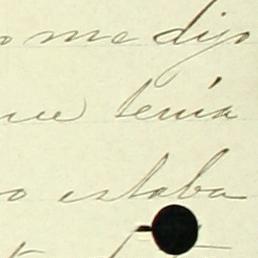 o me dijo
ue tenia
o estaba